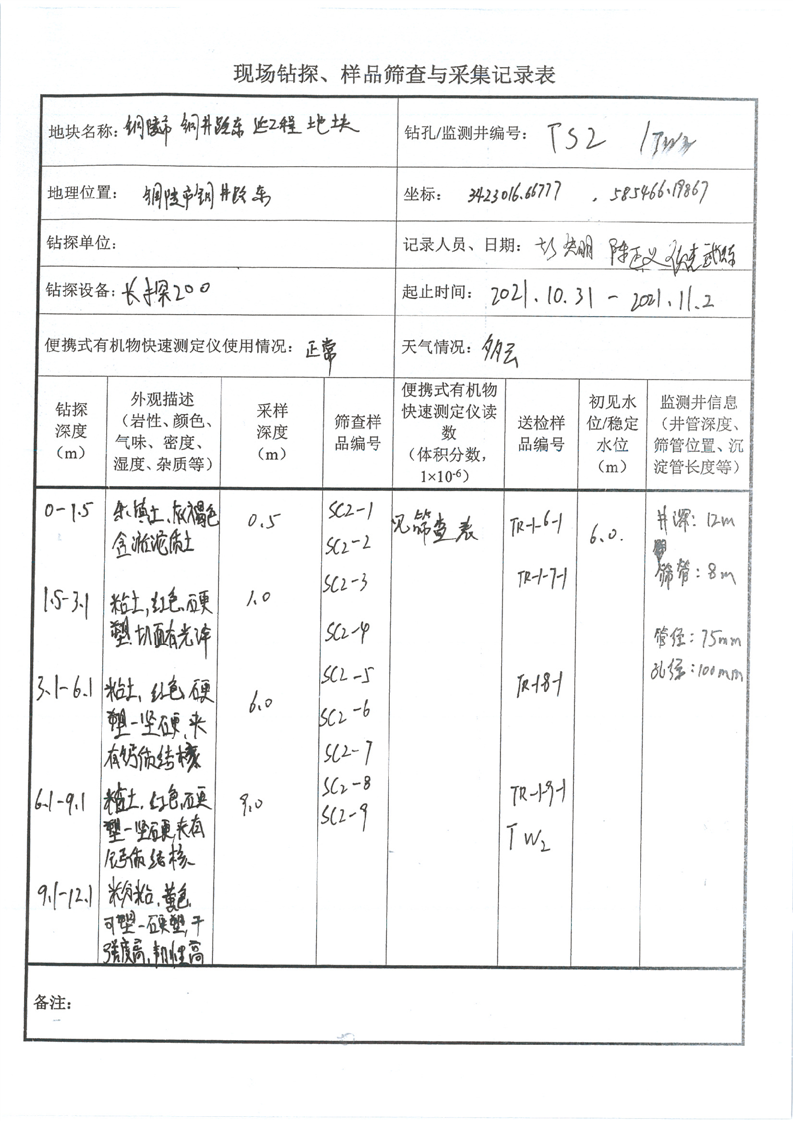 现场钻探、样品筛查与采集记录表
地块名称：铜陵市 铜井路东 地块
钻孔/监测井编号： TS2 /TW2
地理位置： 铜陵市铜井路东
坐标： 3423016.66777 , 585466.19867
钻探单位：
记录人员、日期：
钻探设备：长探200
起止时间： 2021.10.31 - 2021.11.2
便携式有机物快速测定仪使用情况：正常
天气情况：多云
钻探
深度
（m）
外观描述
（岩性、颜色、
气味、密度、
湿度、杂质等）
采样
深度
（m）
筛查样
品编号
便携式有机物
快速测定仪读
数
（体积分数，
1×10⁻⁶）
送检样
品编号
初见水
位/稳定
水位
（m）
监测井信息
（井管深度、
筛管位置、沉
淀管长度等）
0-1.5
杂填土、灰褐色
含淤泥质土
0.5
SC2-1
SC2-2
见筛查表
TR-1-6-1
6.0.
井深：12m
筛管：8m
管径：75mm
孔径：100mm
1.5-3.1
粘土，红色，硬
塑，切面有光泽
1.0
SC2-3
SC2-4
TR-1-7-1
3.1-6.1
粘土，红色，硬
塑-坚硬，夹
有钙质结核
6.0
SC2-5
SC2-6
SC2-7
TR-1-8-1
6.1-9.1
粘土，红色，硬
塑-坚硬，夹有
钙质结核
9.0
SC2-8
SC2-9
TR-1-9-1
TW2
9.1-12.1
粉粘，黄色，
可塑-硬塑，干
强度高，韧性高
备注：